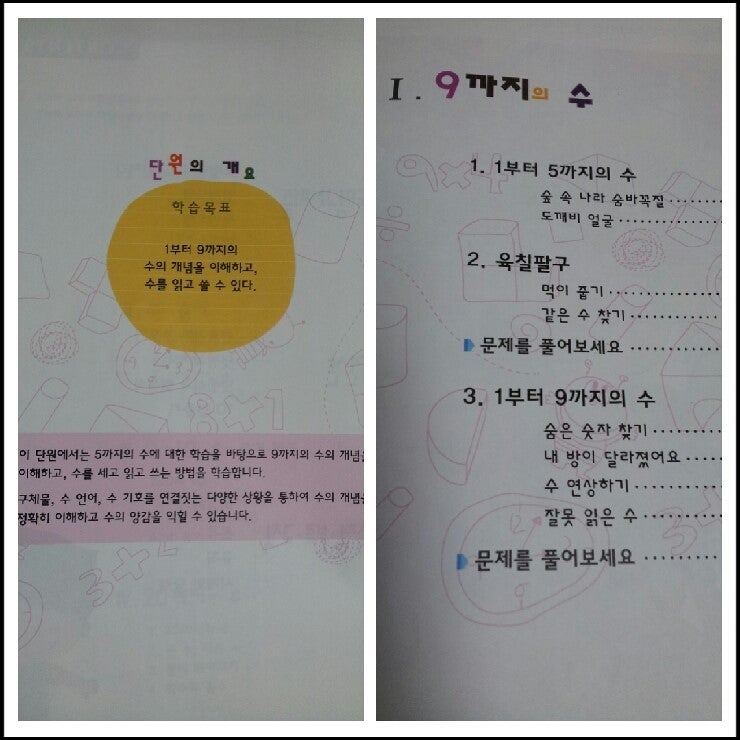 단원의 개요
학습목표
1부터 9까지의
수의 개념을 이해하고,
수를 읽고 쓸 수 있다.
8×1
이 단원에서는 5까지의 수에 대한 학습을 바탕으로 9까지의 수의 개념을
이해하고, 수를 세고 읽고 쓰는 방법을 학습합니다.
구체물, 수 언어, 수 기호를 연결짓는 다양한 상황을 통하여 수의 개념을
정확히 이해하고 수의 양감을 익힐 수 있습니다.
3+2
I. 9까지의 수
9×4
1. 1부터 5까지의 수
숲 속 나라 숨바꼭질
도깨비 얼굴
2. 육칠팔구
먹이 줍기
같은 수 찾기
문제를 풀어보세요
3. 1부터 9까지의 수
숨은 숫자 찾기
내 방이 달라졌어요
수 연상하기
잘못 읽은 수
문제를 풀어보세요